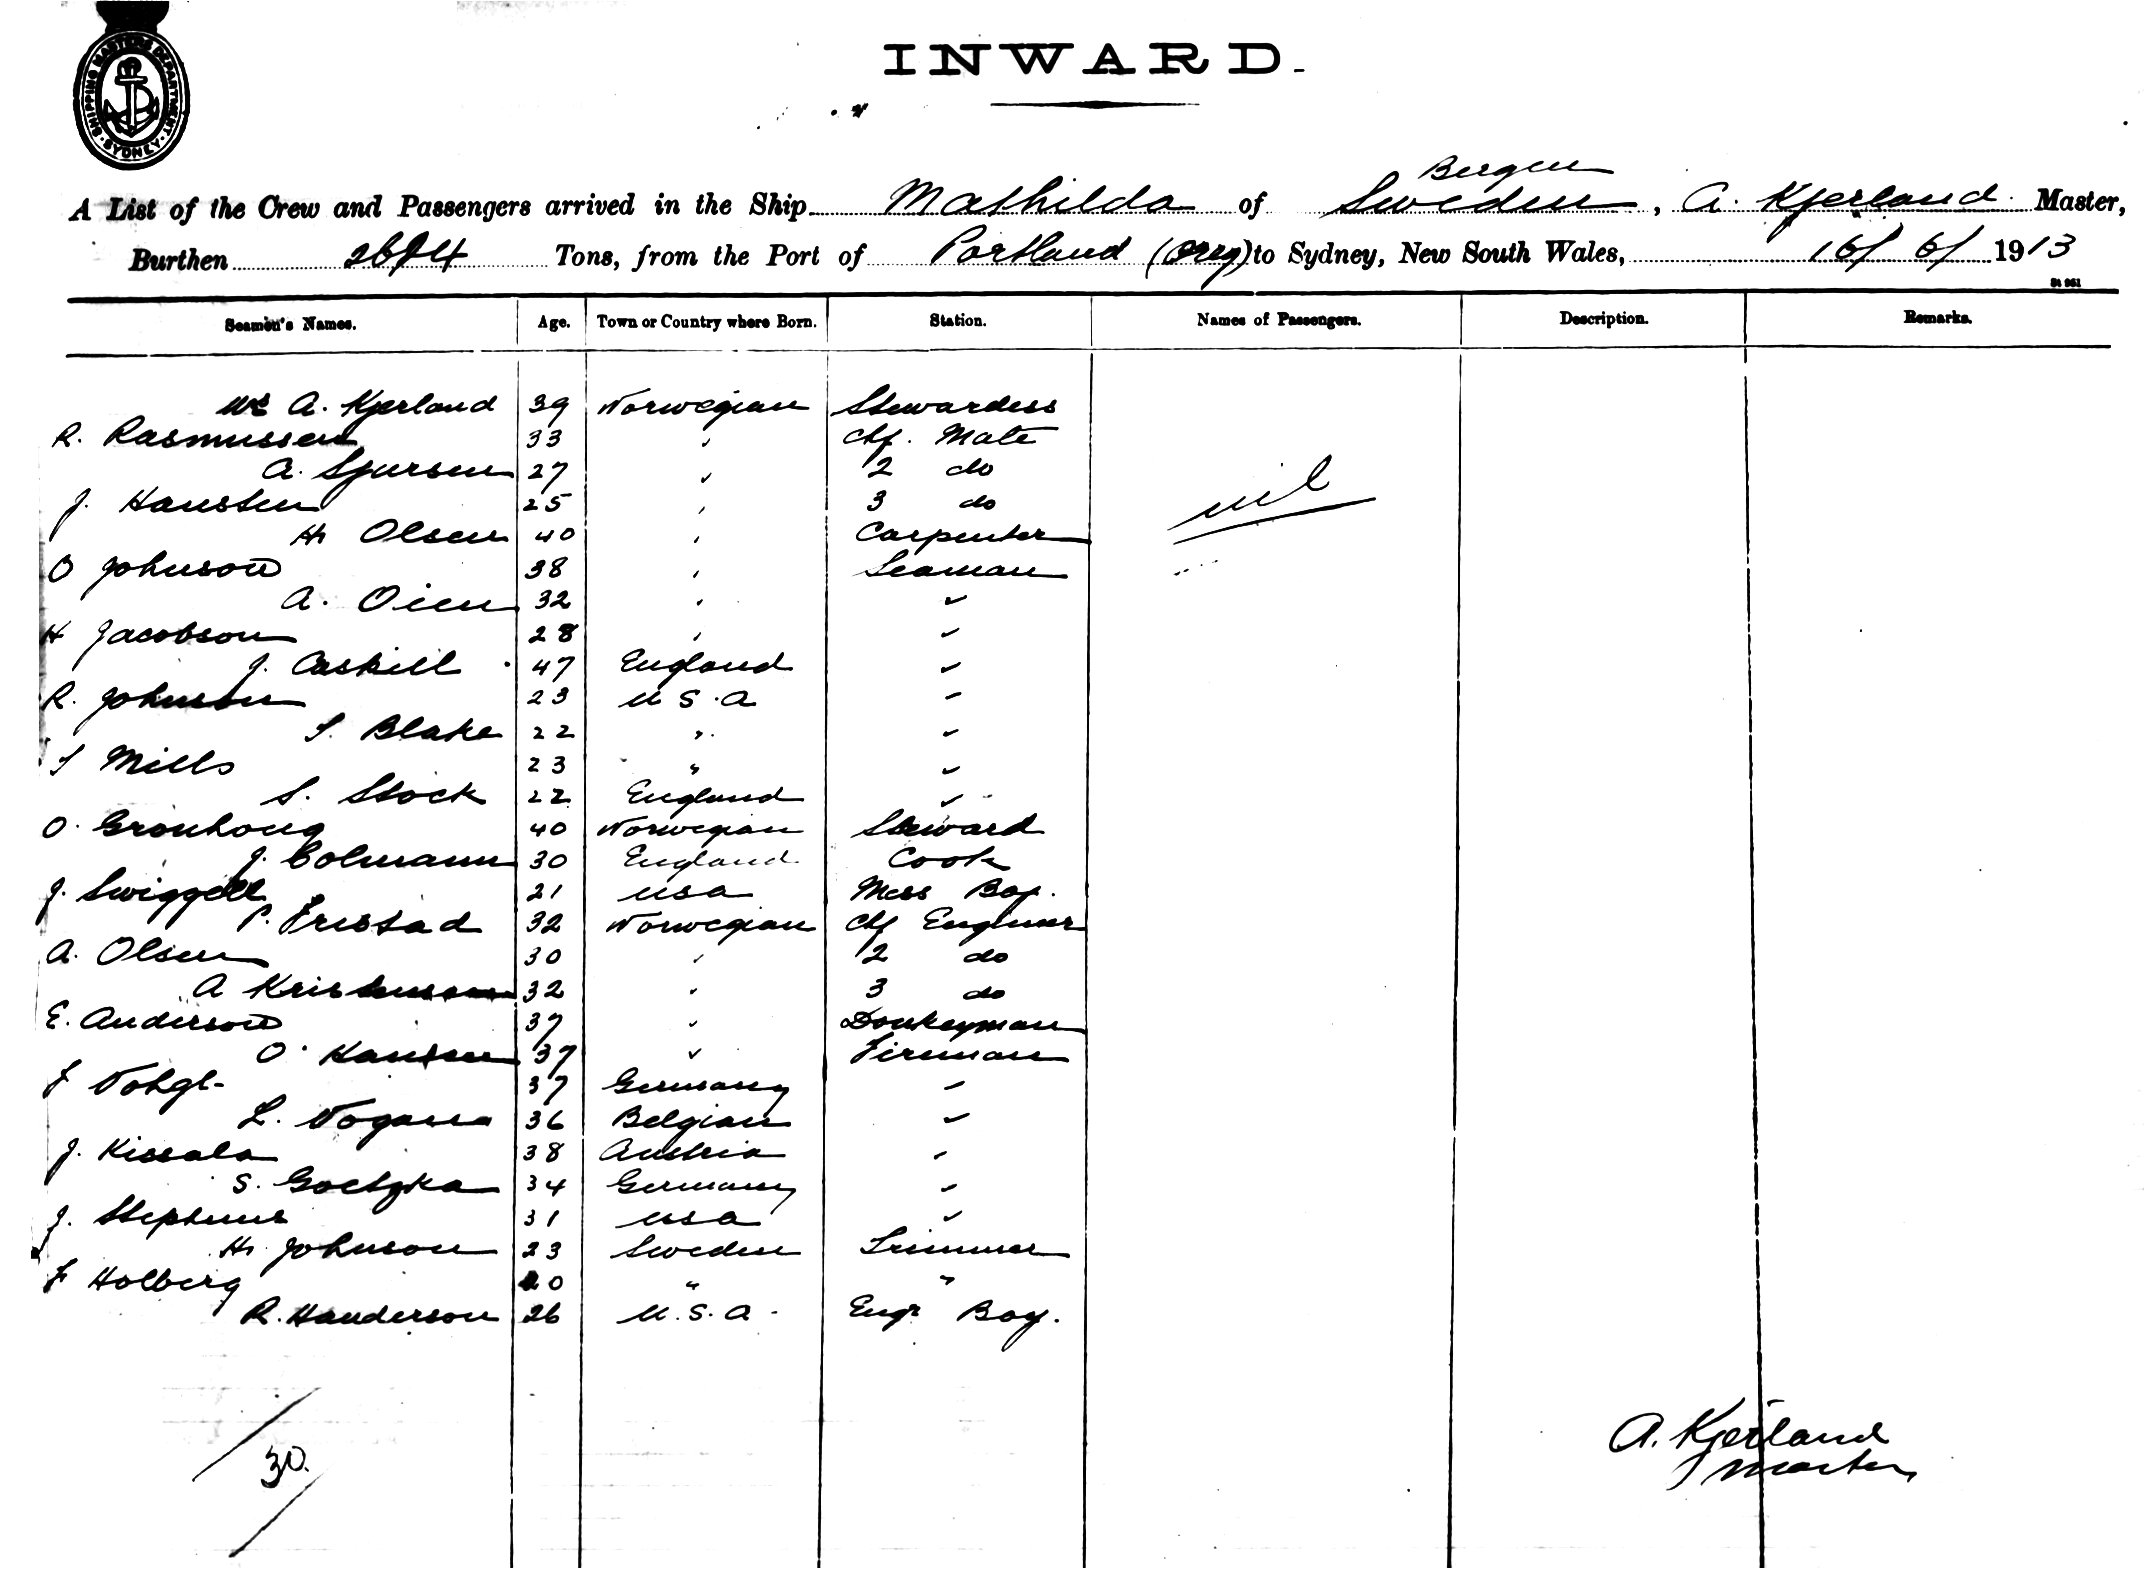 SHIPPING MASTERS DEPARTMENT · SYDNEY ·
INWARD.
Bergen
A List of the Crew and Passengers arrived in the Ship Mathilda of Sweden, A. Kjerland Master,
Burthen Tons, from the Port of Portland (Oreg) to Sydney, New South Wales, 16/ 6/ 1913
Seamen's Names. Age. Town or Country where Born. Station. Names of Passengers. Description. Remarks.
A. Kjerland 39 Norwegian Stewardess
R. Rasmussen 33 " Chf. Mate
A. Sjursen 27 " 2 do
J. Hansten 25 " 3 do
nil
H Olsen 40 " Carpenter
O Johnson 38 " Seaman
A. Oien 32 " "
H Jacobson 28 " "
J. Caskill 47 England "
R. Johnson 23 U.S.A "
S. Blake 22 " "
S Mills 23 " "
S. Stock 22 England "
O. Gronhoug 40 Norwegian Steward
J. Colmann 30 England Cook
J. Swiggett 21 USA Mess Boy.
P. Fristad 32 Norwegian Chf Engineer
A. Olsen 30 " 2 do
A Kristensen 32 " 3 do
E. Anderson 37 " Donkeyman
O. Hansen 37 " Fireman
F Vohgt 37 Germany "
L. 36 Belgian "
J. Kissala 38 Austria "
S. Goetzka 34 Germany "
J. Stephens 31 USA "
H. Johnson 23 Sweden Trimmer
F Holberg 20 " "
R. Handerson 26 U.S.A. Engr Boy.
30.
A. Kjerland
Master